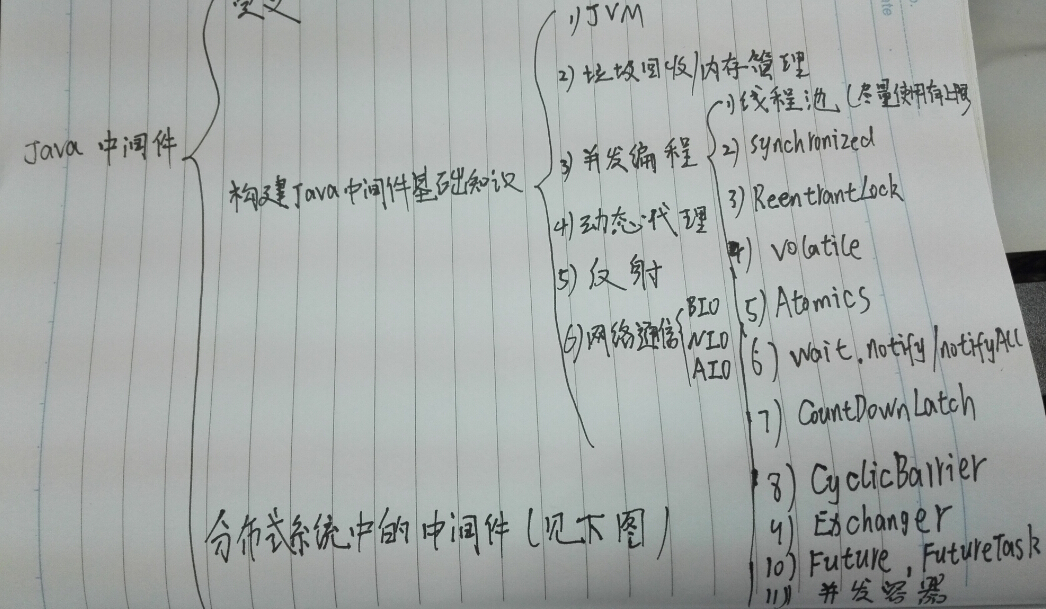 定义
Java 中间件
构建Java中间件基础知识
1) JVM
2) 垃圾回收/内存管理
3) 并发编程
1) 线程池 (尽量使用有上限
2) synchronized
3) ReentrantLock
4) volatile
5) Atomics
6) wait.notify/notifyAll
7) CountDownLatch
8) CyclicBarrier
9) Exchanger
10) Future, FutureTask
11) 并发容器
4) 动态代理
5) 反射
6) 网络通信
BIO
NIO
AIO
分布式系统中的中间件 (见下图)